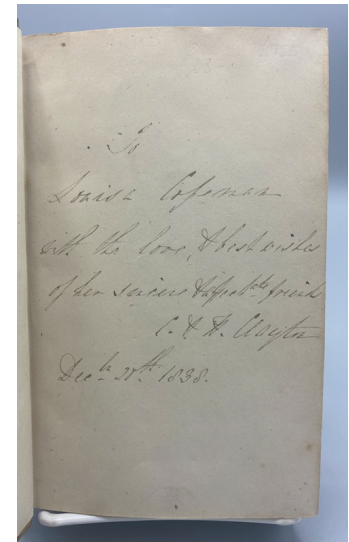 To
Louisa Copeman
with the love, & best wishes
of her sincere & affectate friends
C. & H. Clayton
Decbr 28th 1838.